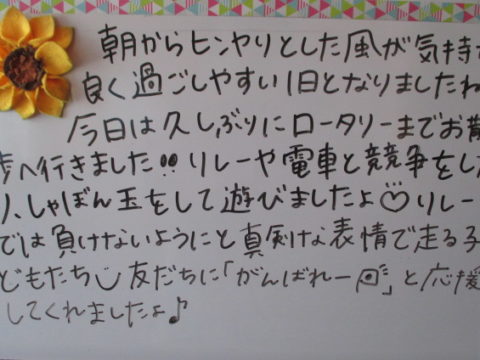 朝からヒンヤリとした風が気持
良く過ごしやすい1日となりましたね
今日は久しぶりにロータリーまでお散
歩へ行きました!!リレーや電車と競争をした
り、しゃぼん玉をして遊びましたよ♡リレー
では負けないようにと真剣な表情で走る子
どもたち 友だちに「がんばれー」と応援
してくれましたよ♪